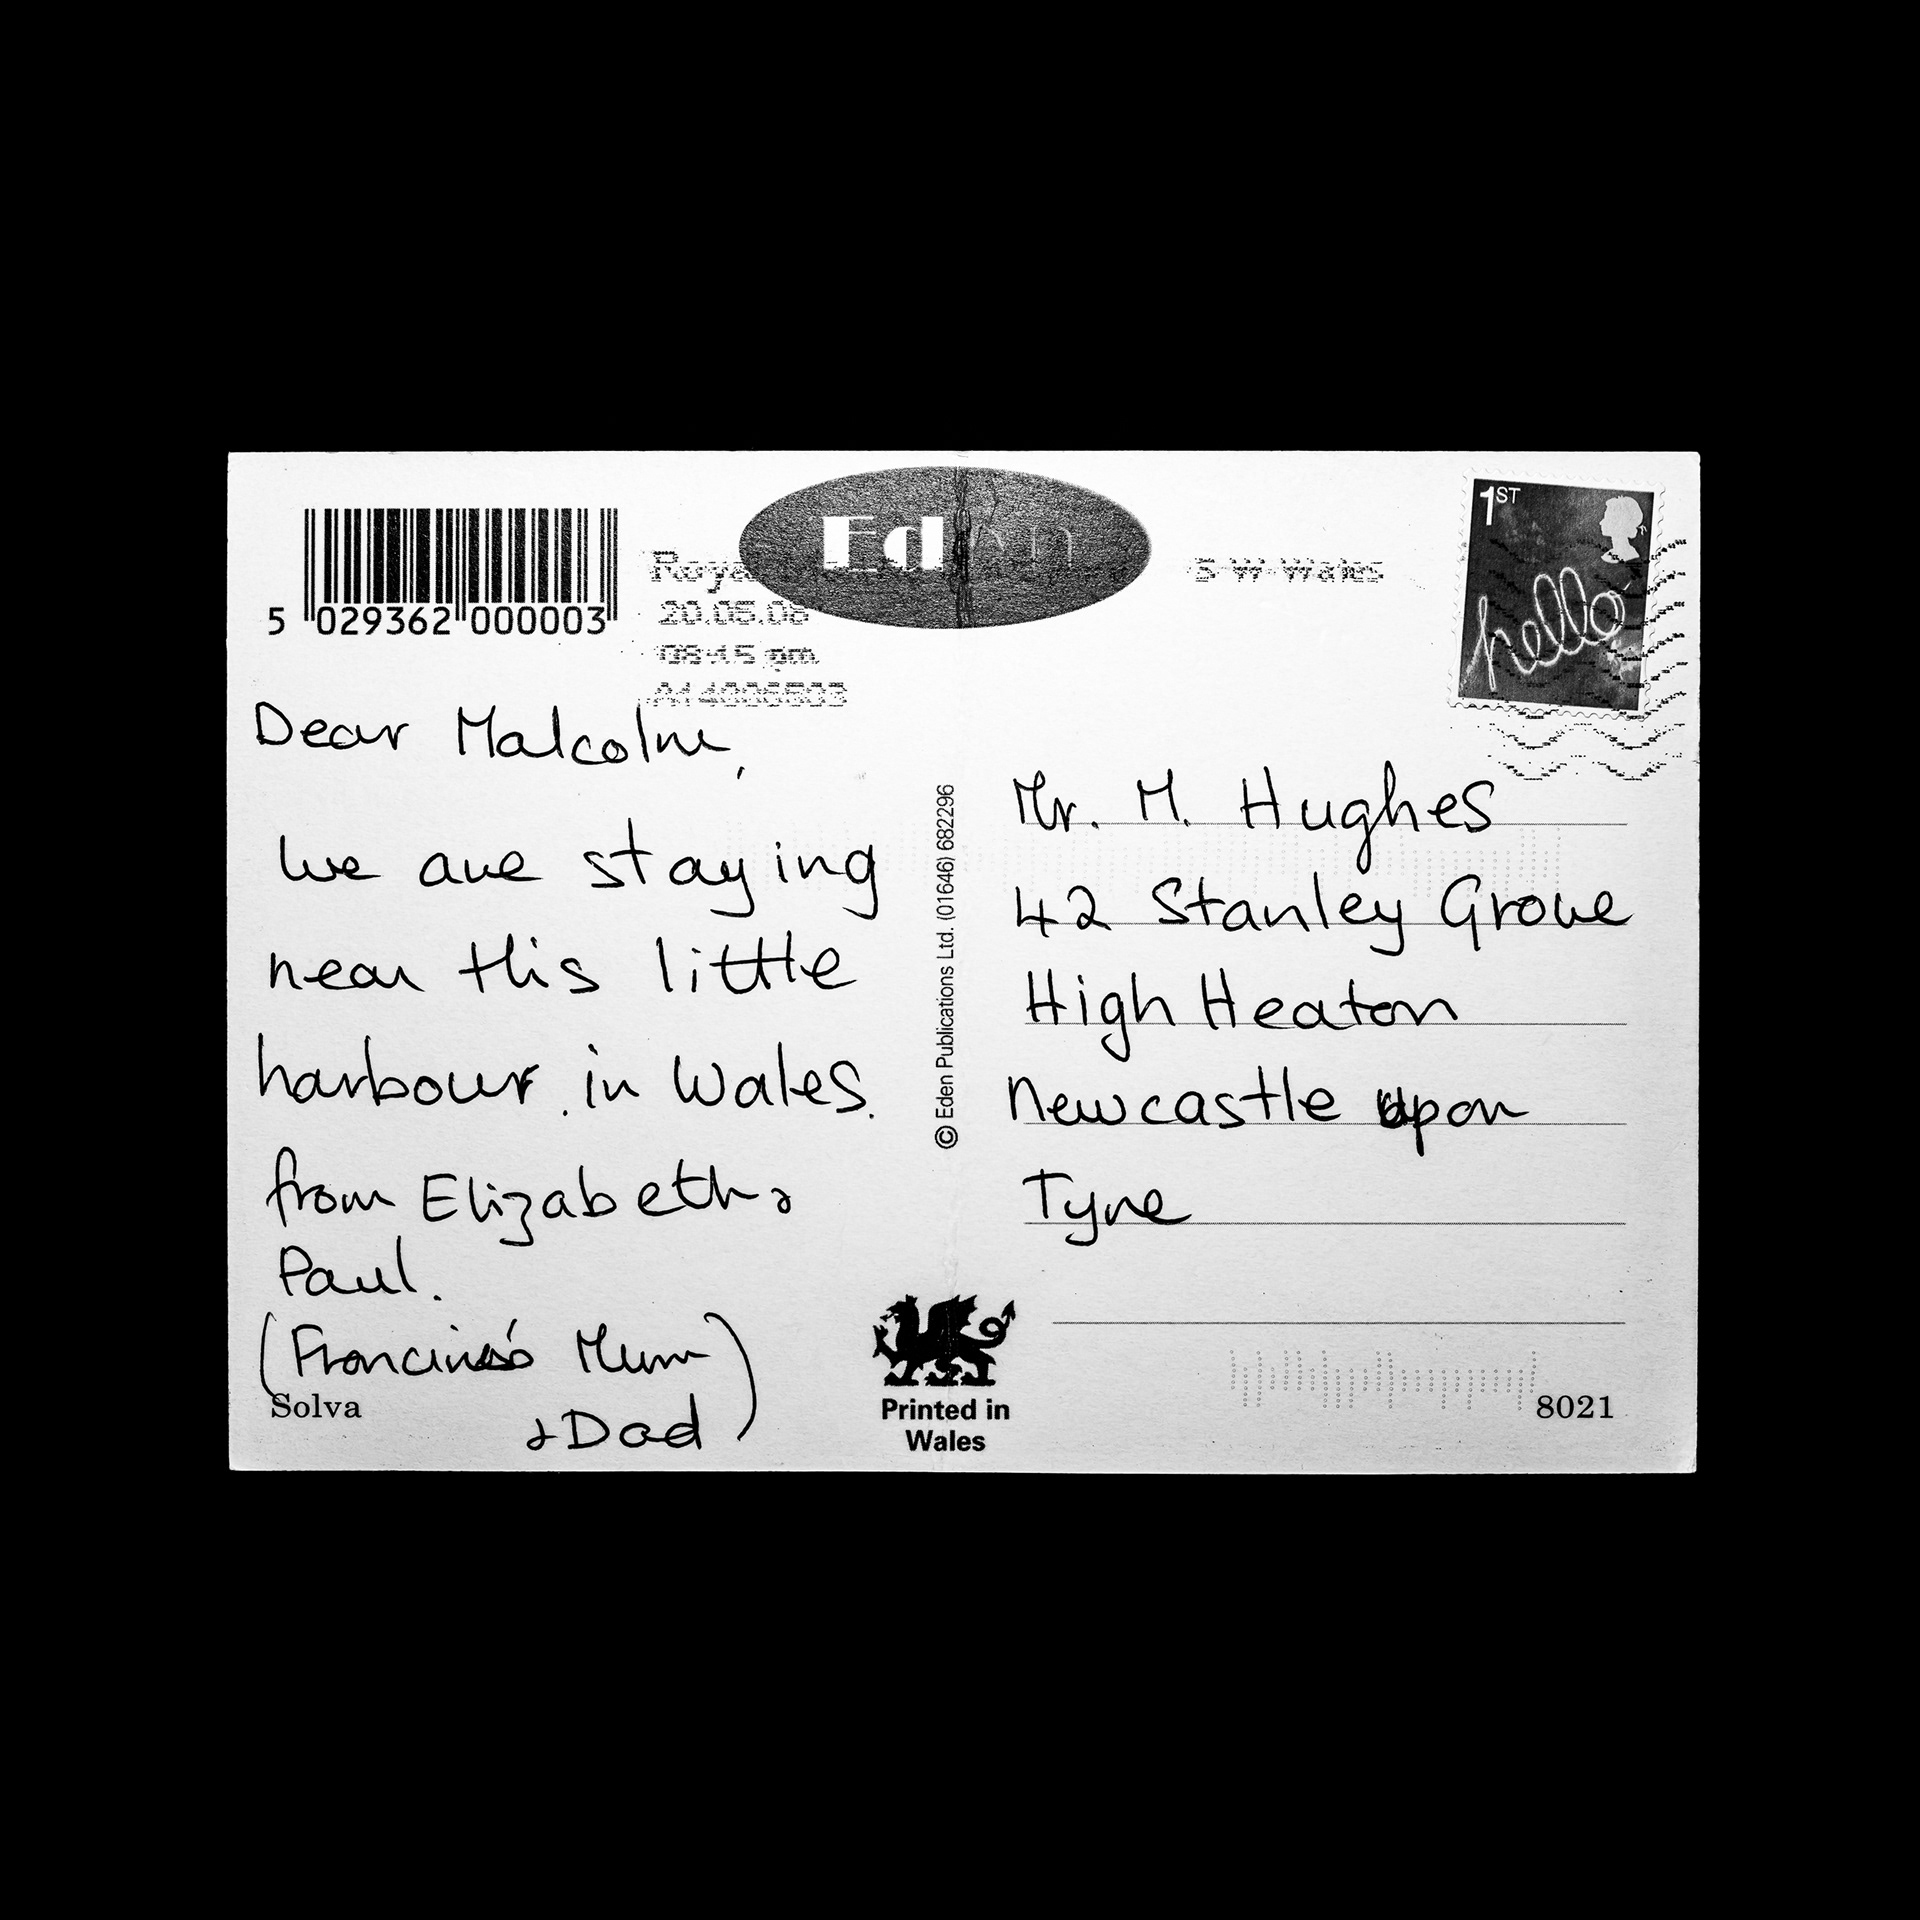 5 029362 000003
Ed
S W Wales
20.05.08
06:15 pm
1ST
hello
Dear Malcolm,
we are staying
near this little
harbour in Wales.
from Elizabeth &
Paul.
(Francine's Mum
& Dad)
Solva
© Eden Publications Ltd. (01646) 682296
Printed in
Wales
Mr. M. Hughes
42 Stanley Grove
High Heaton
Newcastle upon
Tyne
8021